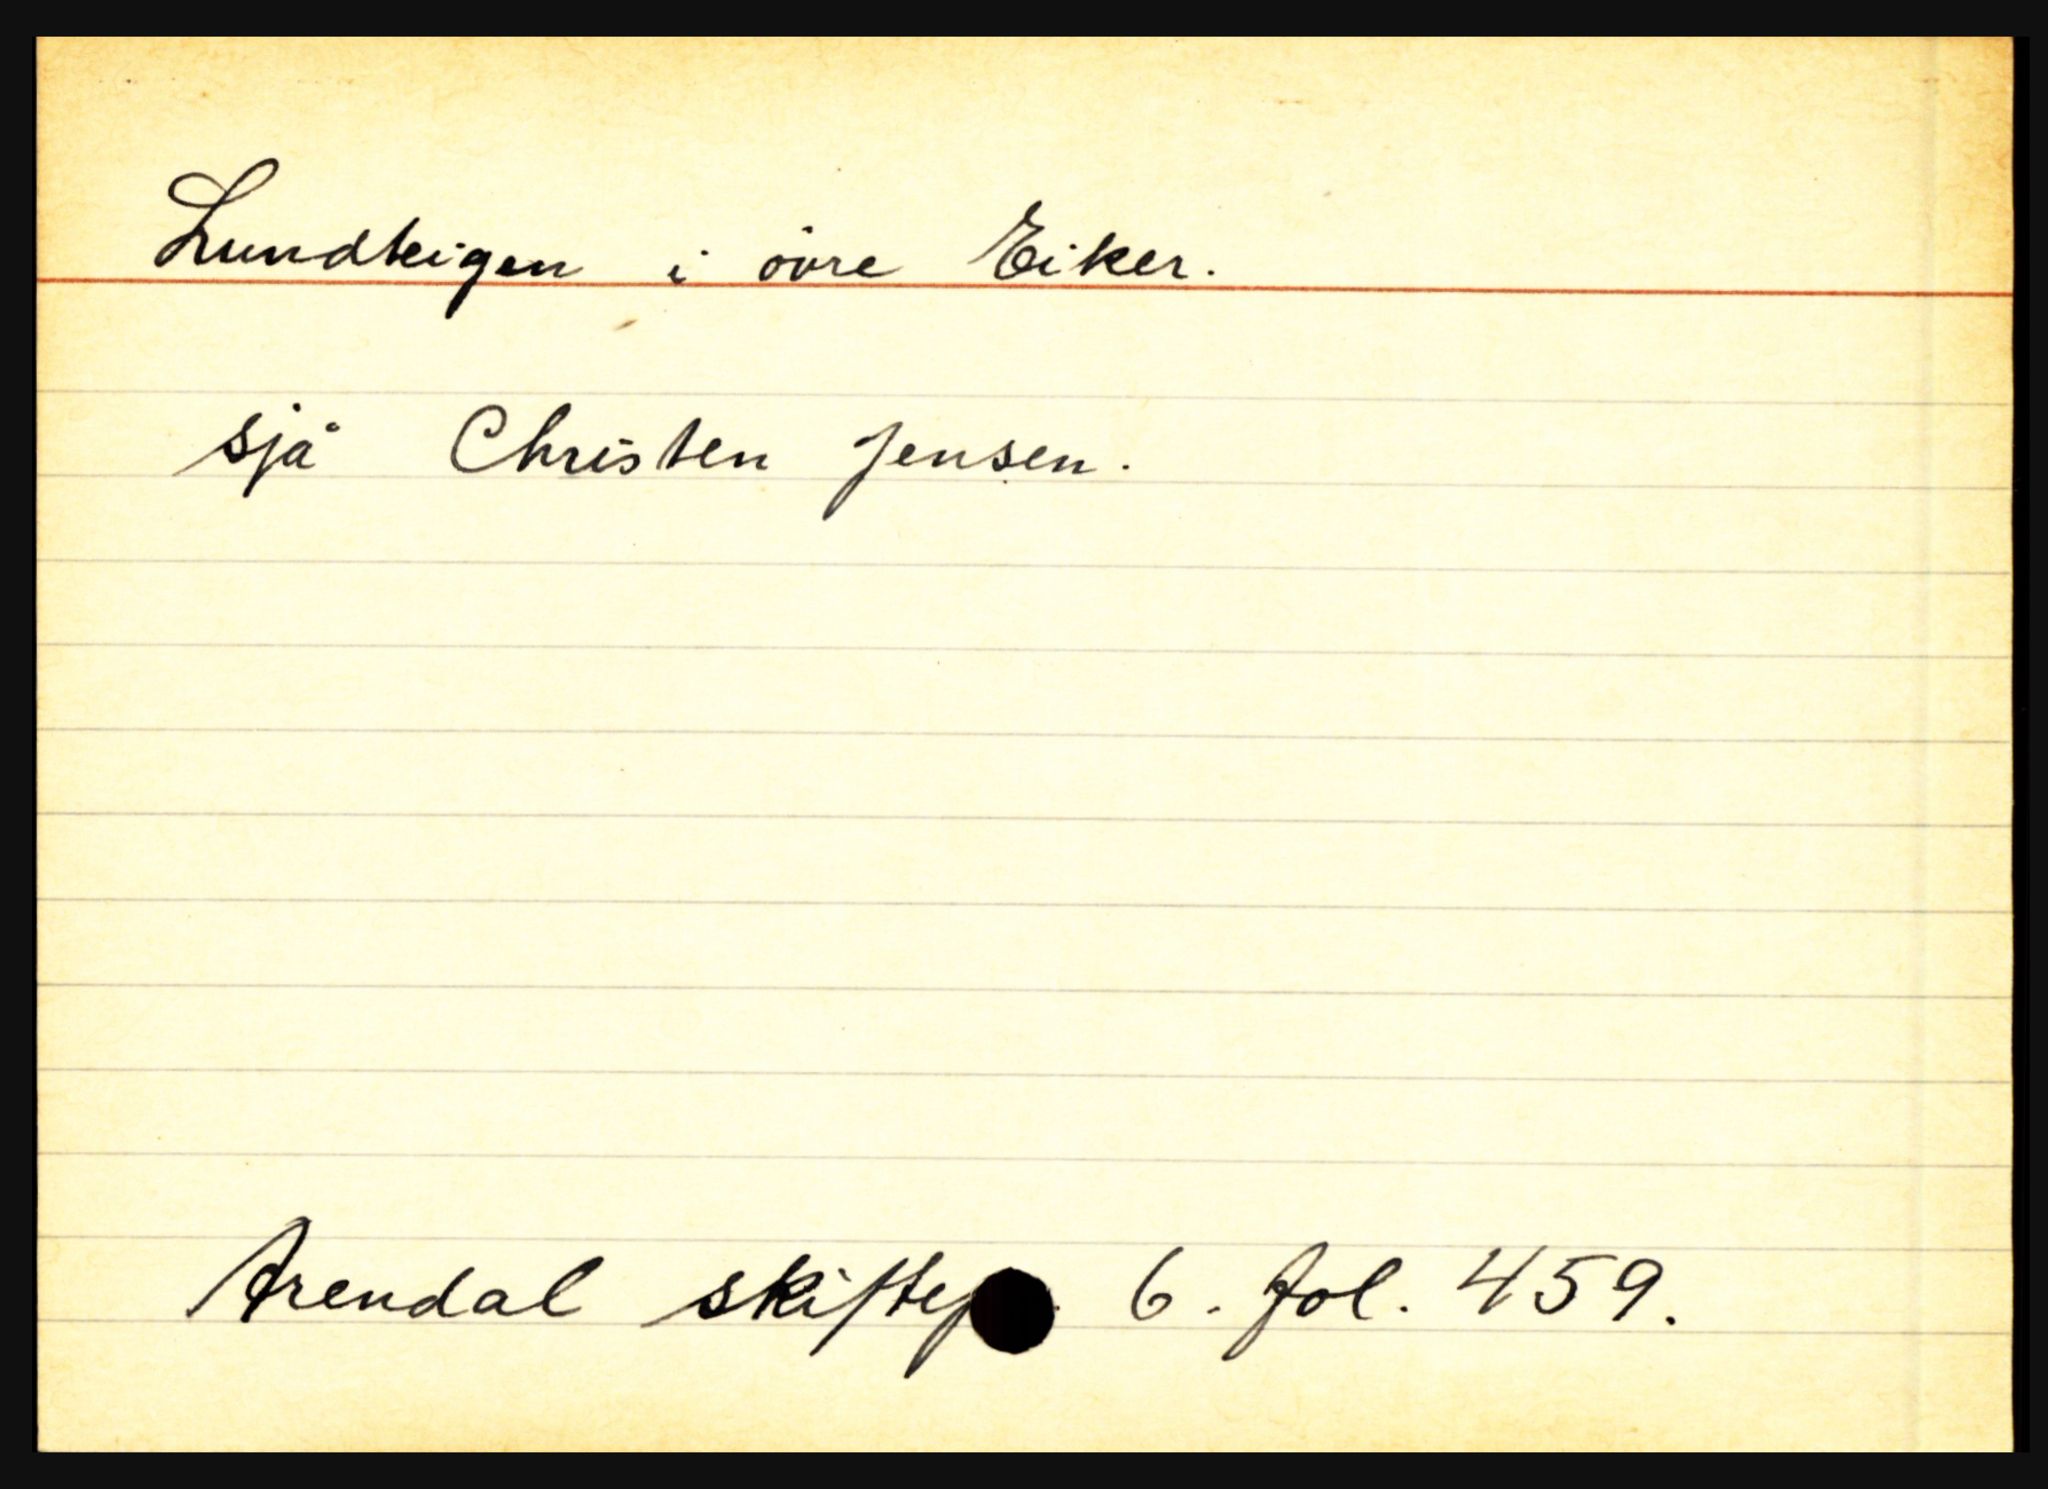 Lundteigen i övre Eiker.
sjå Christen Jensen.
Arendal skiftep 6. fol. 459.